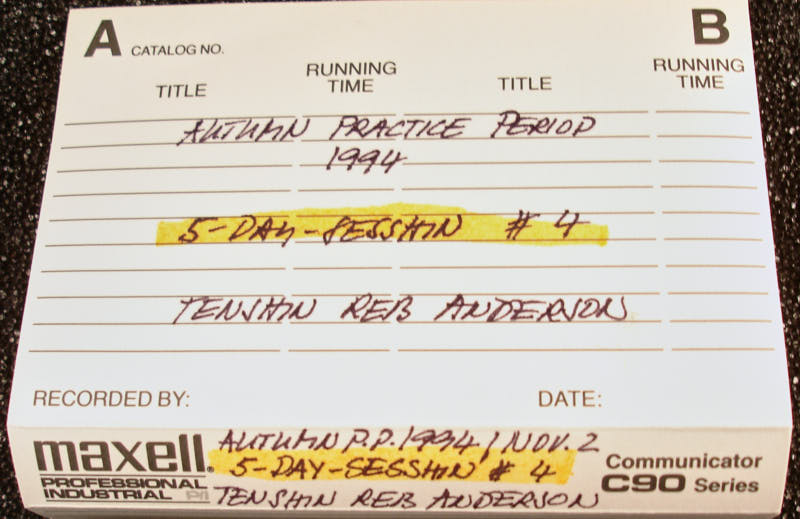 A CATALOG NO. B
TITLE RUNNING TIME TITLE RUNNING TIME
AUTUMN PRACTICE PERIOD
1994
5-DAY-SESSHIN # 4
TENSHIN REB ANDERSON
RECORDED BY: DATE:
maxell.
PROFESSIONAL
INDUSTRIAL P/I
AUTUMN P.P. 1994 / NOV. 2
5-DAY-SESSHIN # 4
TENSHIN REB ANDERSON
Communicator
C90 Series